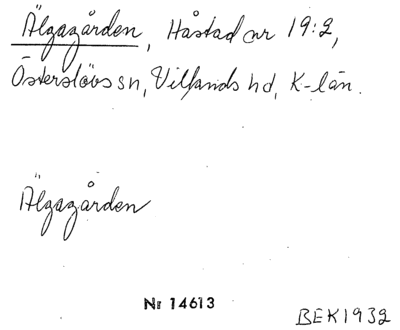 Älgagården, Håstad nr 19:2,
Österslövs sn, Villands hd, K-län.
Älgagården
Nr 14613
BEK1932